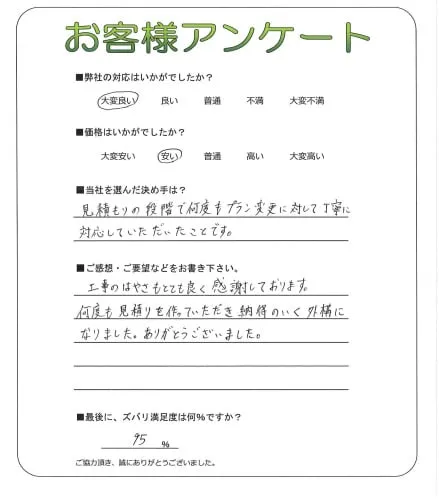 お客様アンケート
■弊社の対応はいかがでしたか？
大変良い 良い 普通 不満 大変不満
■価格はいかがでしたか？
大変安い 安い 普通 高い 大変高い
■当社を選んだ決め手は？
見積もりの段階で何度もプラン変更に対して丁寧に
対応していただいたことです。
■ご感想・ご要望などをお書き下さい。
工事のはやさもとても良く感謝しております。
何度も見積りを作っていただき納得のいく外構に
なりました。ありがとうございました。
■最後に、ズバリ満足度は何%ですか？
95 %
ご協力頂き、誠にありがとうございました。